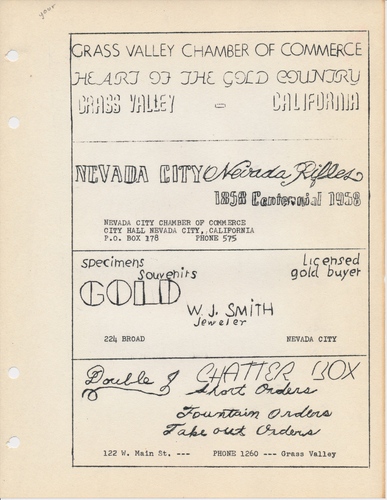 your
GRASS VALLEY CHAMBER OF COMMERCE
HEART OF THE GOLD COUNTRY
GRASS VALLEY - CALIFORNIA
NEVADA CITY Nevada Rifles
1858 Centennial 1958
NEVADA CITY CHAMBER OF COMMERCE
CITY HALL NEVADA CITY, CALIFORNIA
P.O. BOX 178 PHONE 575
specimens licensed
souvenirs gold buyer
GOLD
W. J. SMITH
Jeweler
224 BROAD NEVADA CITY
Double J CHATTER BOX
Short Orders
Fountain Orders
Take out Orders
122 W. Main St. --- PHONE 1260 --- Grass Valley